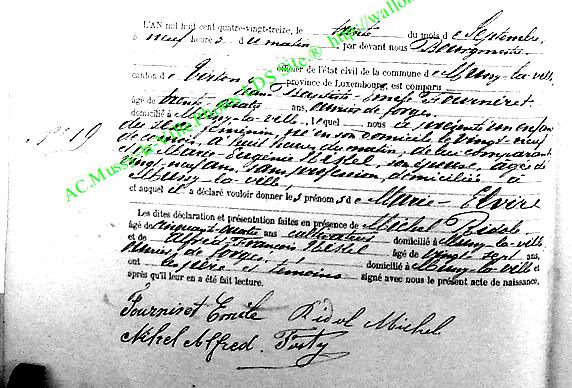 L'AN mil huit cent quatre-vingt-treize, le trente du mois de Septembre,
à neuf heures du matin, par devant nous Bourgmestre
officier de l'état civil de la commune de Mussy-la-ville,
canton de Virton province de Luxembourg, est comparu
Jean Baptiste-Joseph Fourniret,
âgé de trente-quatre ans, ouvrier de forges,
domicilié à Mussy-la-ville, lequel nous a présenté un enfant
N° 19
du sexe féminin, né en son domicile le vingt-neuf
de ce mois, à huit heures du matin, de lui comparant
et de Marie Eugénie son épouse, âgée de
vingt neuf ans, sans profession, domiciliés à
Mussy-la-ville,
et auquel il a déclaré vouloir donner les prénoms de Marie-Elvire
Les dites déclaration et présentation faites en présence de Michel Ridol
âgé de cinquante-quatre ans cultivateur domicilié à Mussy-la-ville
et de Alfred François âgé de vingt sept ans,
ouvrier de forges, domicilié à Mussy-la-ville et
ont les père et témoins signé avec nous le présent acte de naissance,
après qu'il leur en a été fait lecture.
Fourniret Emile Ridol Michel
Alfred
AC.Mussy-la-Ville Photo EDS Site.® http://wallo